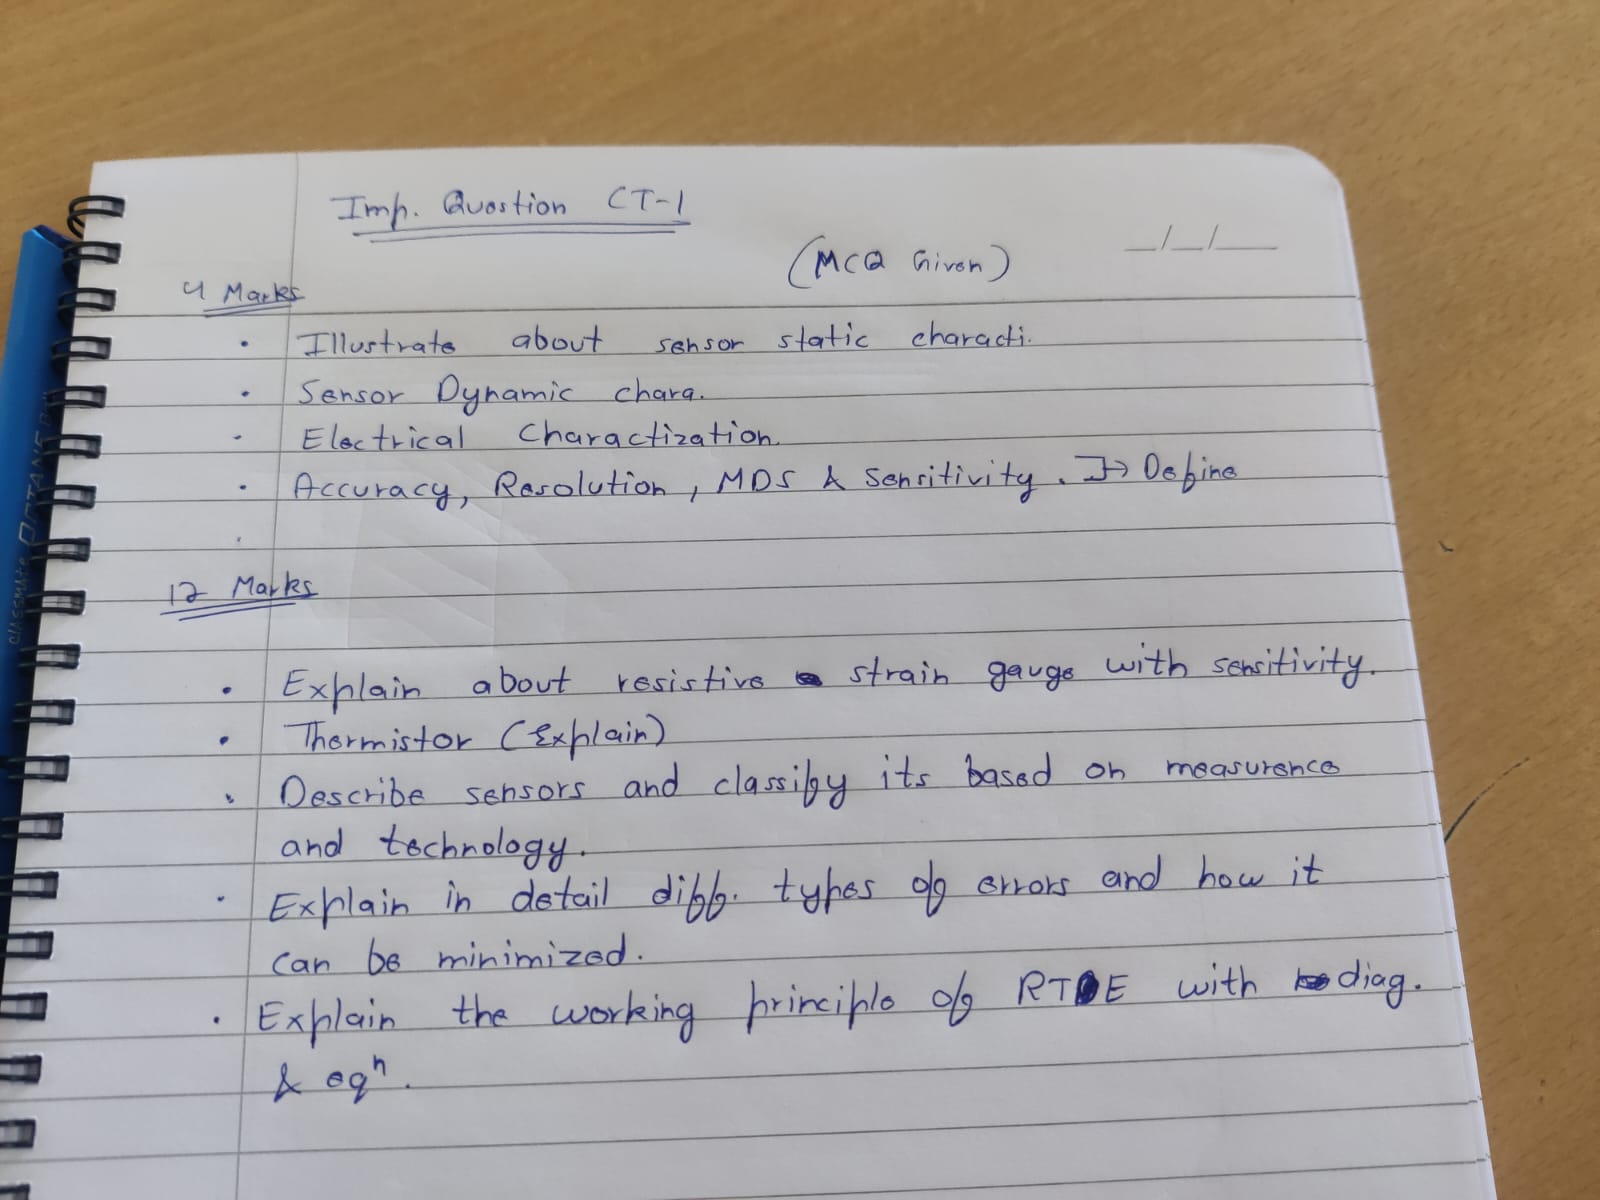 Imp. Quostion CT-1
_/_/__
(MCQ Given)
4 Marks
• Illustrate about sensor static characti.
• Sensor Dynamic chara.
- Electrical Charactization.
• Accuracy, Resolution, MDS & Sensitivity. ]→ Define
12 Marks
• Explain about resistive strain gauge with sensitivity.
• Thermistor (Explain)
• Describe sensors and classify its based on measurence
and technology.
• Explain in detail diff. types of errors and how it
can be minimized.
• Explain the working principle of RTDE with diag.
& eqⁿ.
CLASSMATE